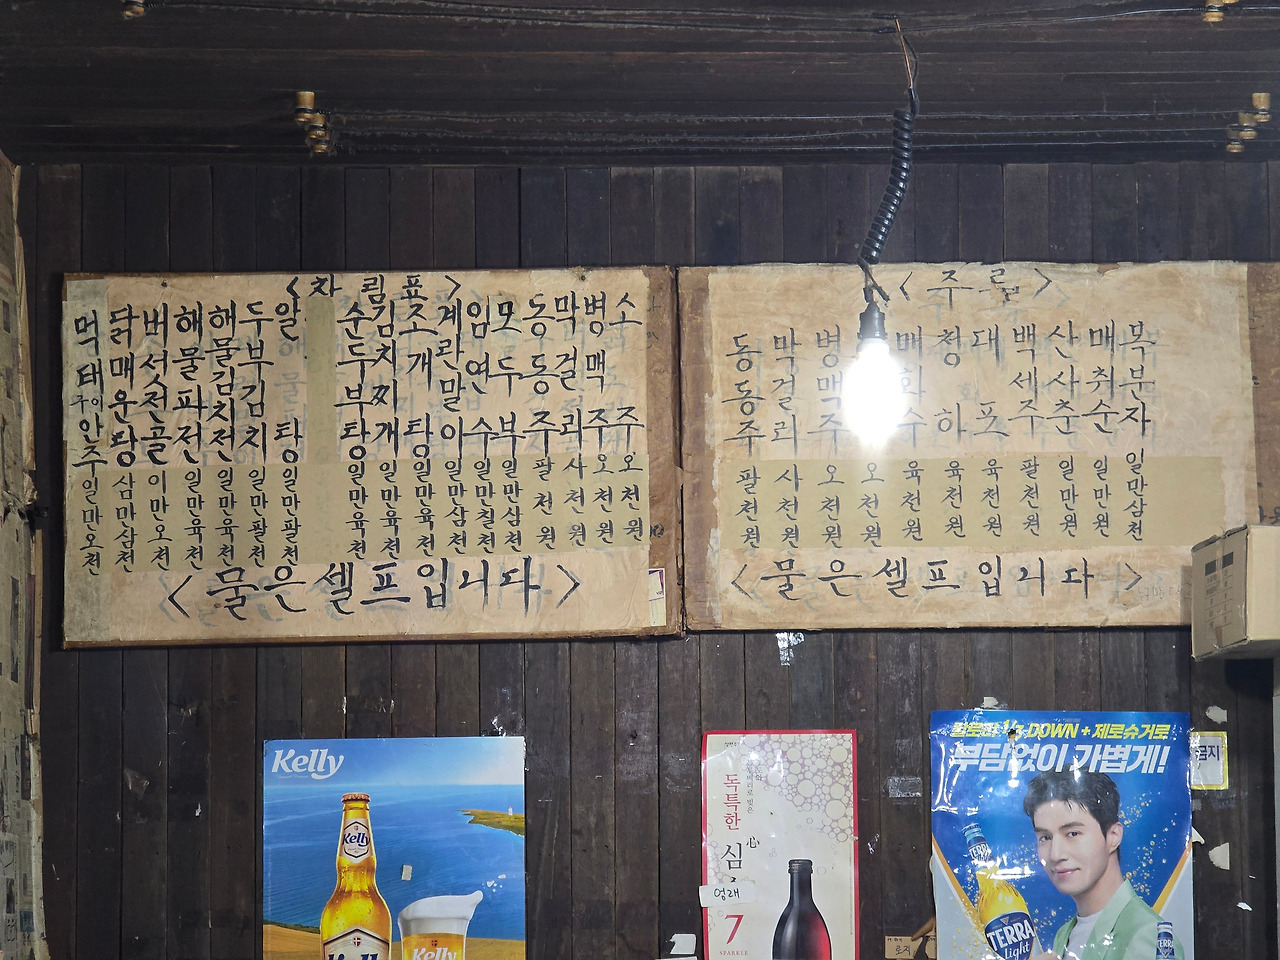 <차림표>
소주 오천원
병맥주 오천원
막걸리 사천원
동동주 팔천원
모두부 일만삼천
임연수 일만칠천
계란말이 일만삼천
조개탕 일만육천
김치찌개 일만육천
순두부탕 일만육천
알탕 일만팔천
두부김치 일만팔천
해물김치전 일만육천
해물파전 일만육천
버섯전골 이만오천
닭매운탕 삼만삼천
먹태구이안주 일만오천
<물은셀프입니다>
<주류>
복분자 일만삼천
매취순 일만원
산사춘 일만원
백세주 팔천원
대포 육천원
청하 육천원
매화수 육천원
주 오천원
병맥주 오천원
막걸리 사천원
동동주 팔천원
<물은셀프입니다>
Kelly
Kelly
Kelly
Kelly
독특한
심
心
엄래
7
SPARKLE
칼로리 1/3 DOWN + 제로슈거로
부담없이 가볍게!
TERRA
TERRA
light
TERRA
금지